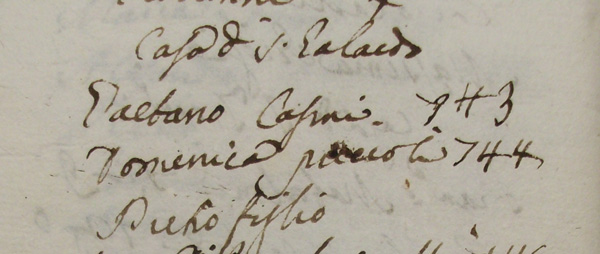 Casa d S. Ealardo
Gaetano Casini. 743
Domenica piccoli 744
Pietro figlio